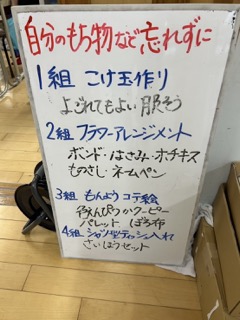 自分のもち物など忘れずに
1組 こけ玉作り
よごれてもよい服そう
2組 フラワーアレンジメント
ボンド・はさみ・ホチキス
ものさし・ネームペン
3組 もんようコテ絵
色えんぴつかクーピー
パレット ぼろ布
4組 シャツ型ティッシュ入れ
さいほうセット